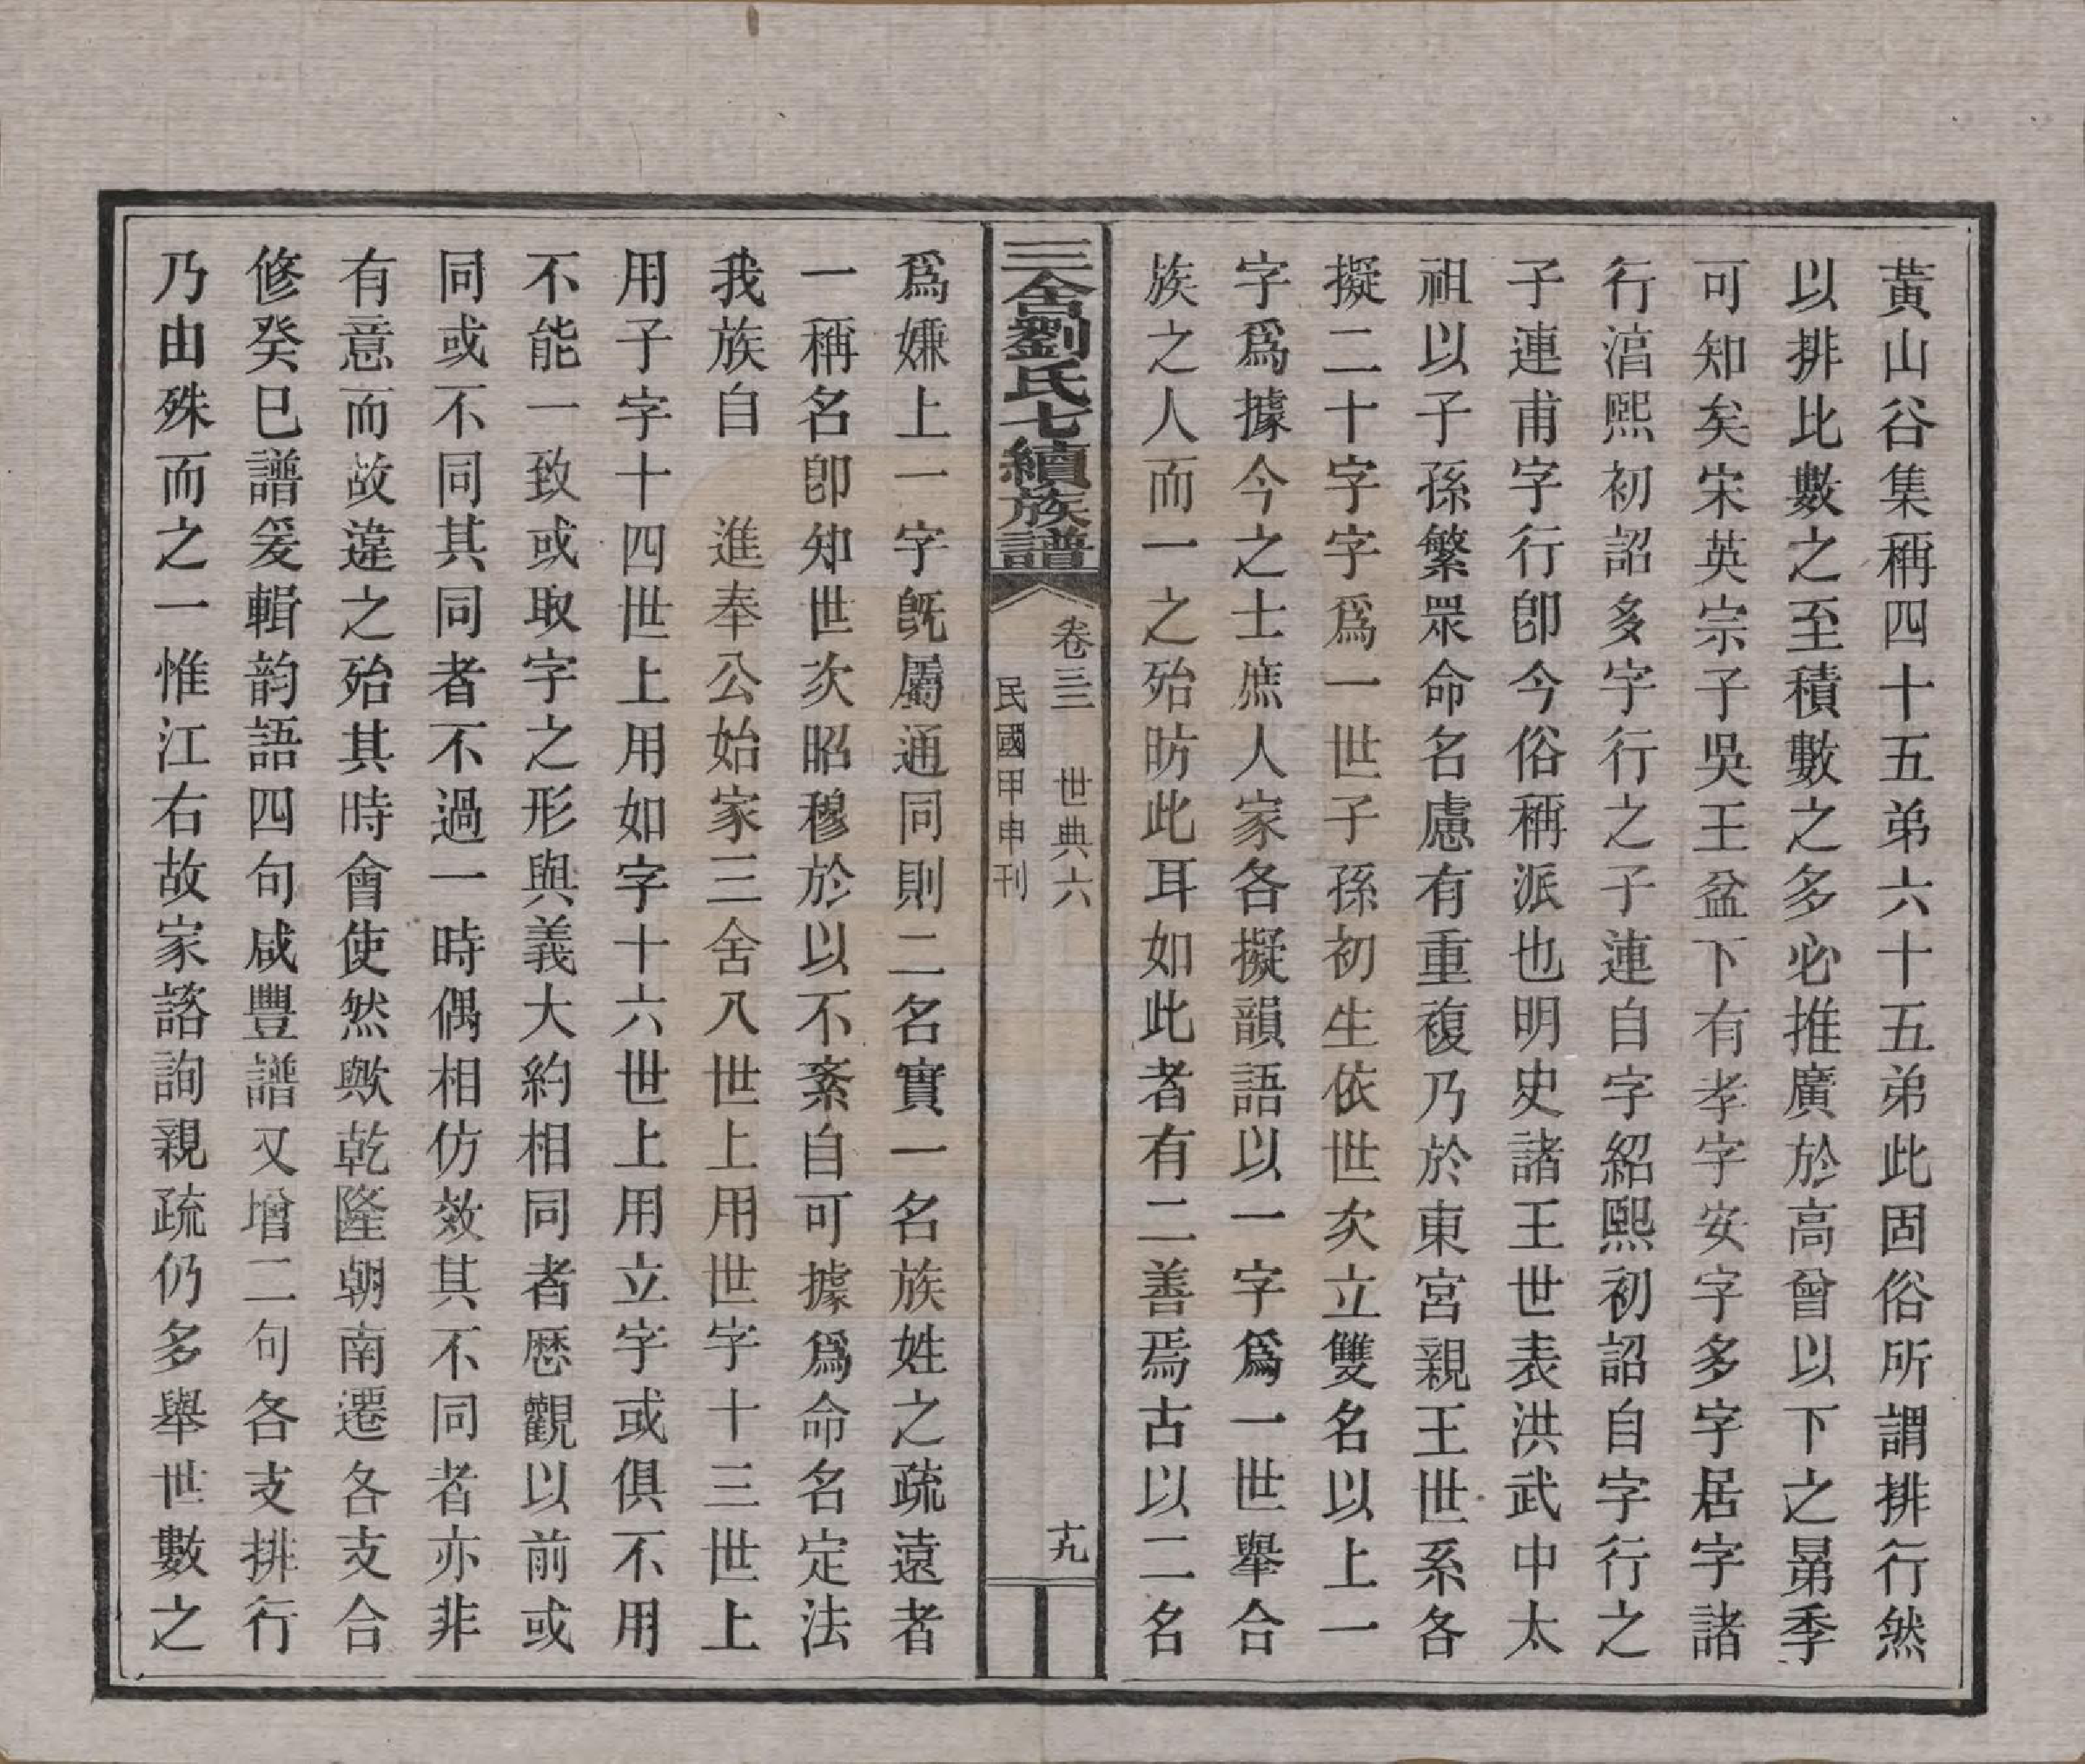 黃山谷集稱四十五弟六十五弟此固俗所謂排行然
以排比數之至積數之多必推廣於高曾以下之晜季
可知矣宋英宗子吳王盆下有孝字安字多字居字諸
行湻熙初詔多字行之子連自字紹熙初詔自字行之
子連甫字行卽今俗稱派也明史諸王世表洪武中太
祖以子孫繁眾命名慮有重複乃於東宮親王世系各
擬二十字字爲一世子孫初生依世次立雙名以上一
字爲據今之士庶人家各擬韻語以一字爲一世舉合
族之人而一之殆昉此耳如此者有二善焉古以二名
三舍劉氏七續族譜
卷三三　世典六
十九
民國甲申刊
爲嫌上一字旣屬通同則二名實一名族姓之疏遠者
一稱名卽知世次昭穆於以不紊自可據爲命名定法
我族自　進奉公始家三舍八世上用世字十三世上
用子字十四世上用如字十六世上用立字或俱不用
不能一致或取字之形與義大約相同者歷觀以前或
同或不同其同者不過一時偶相仿效其不同者亦非
有意而故違之殆其時會使然歟乾隆朝南遷各支合
修癸巳譜爰輯韵語四句咸豐譜又增二句各支排行
乃由殊而之一惟江右故家諮詢親疏仍多舉世數之